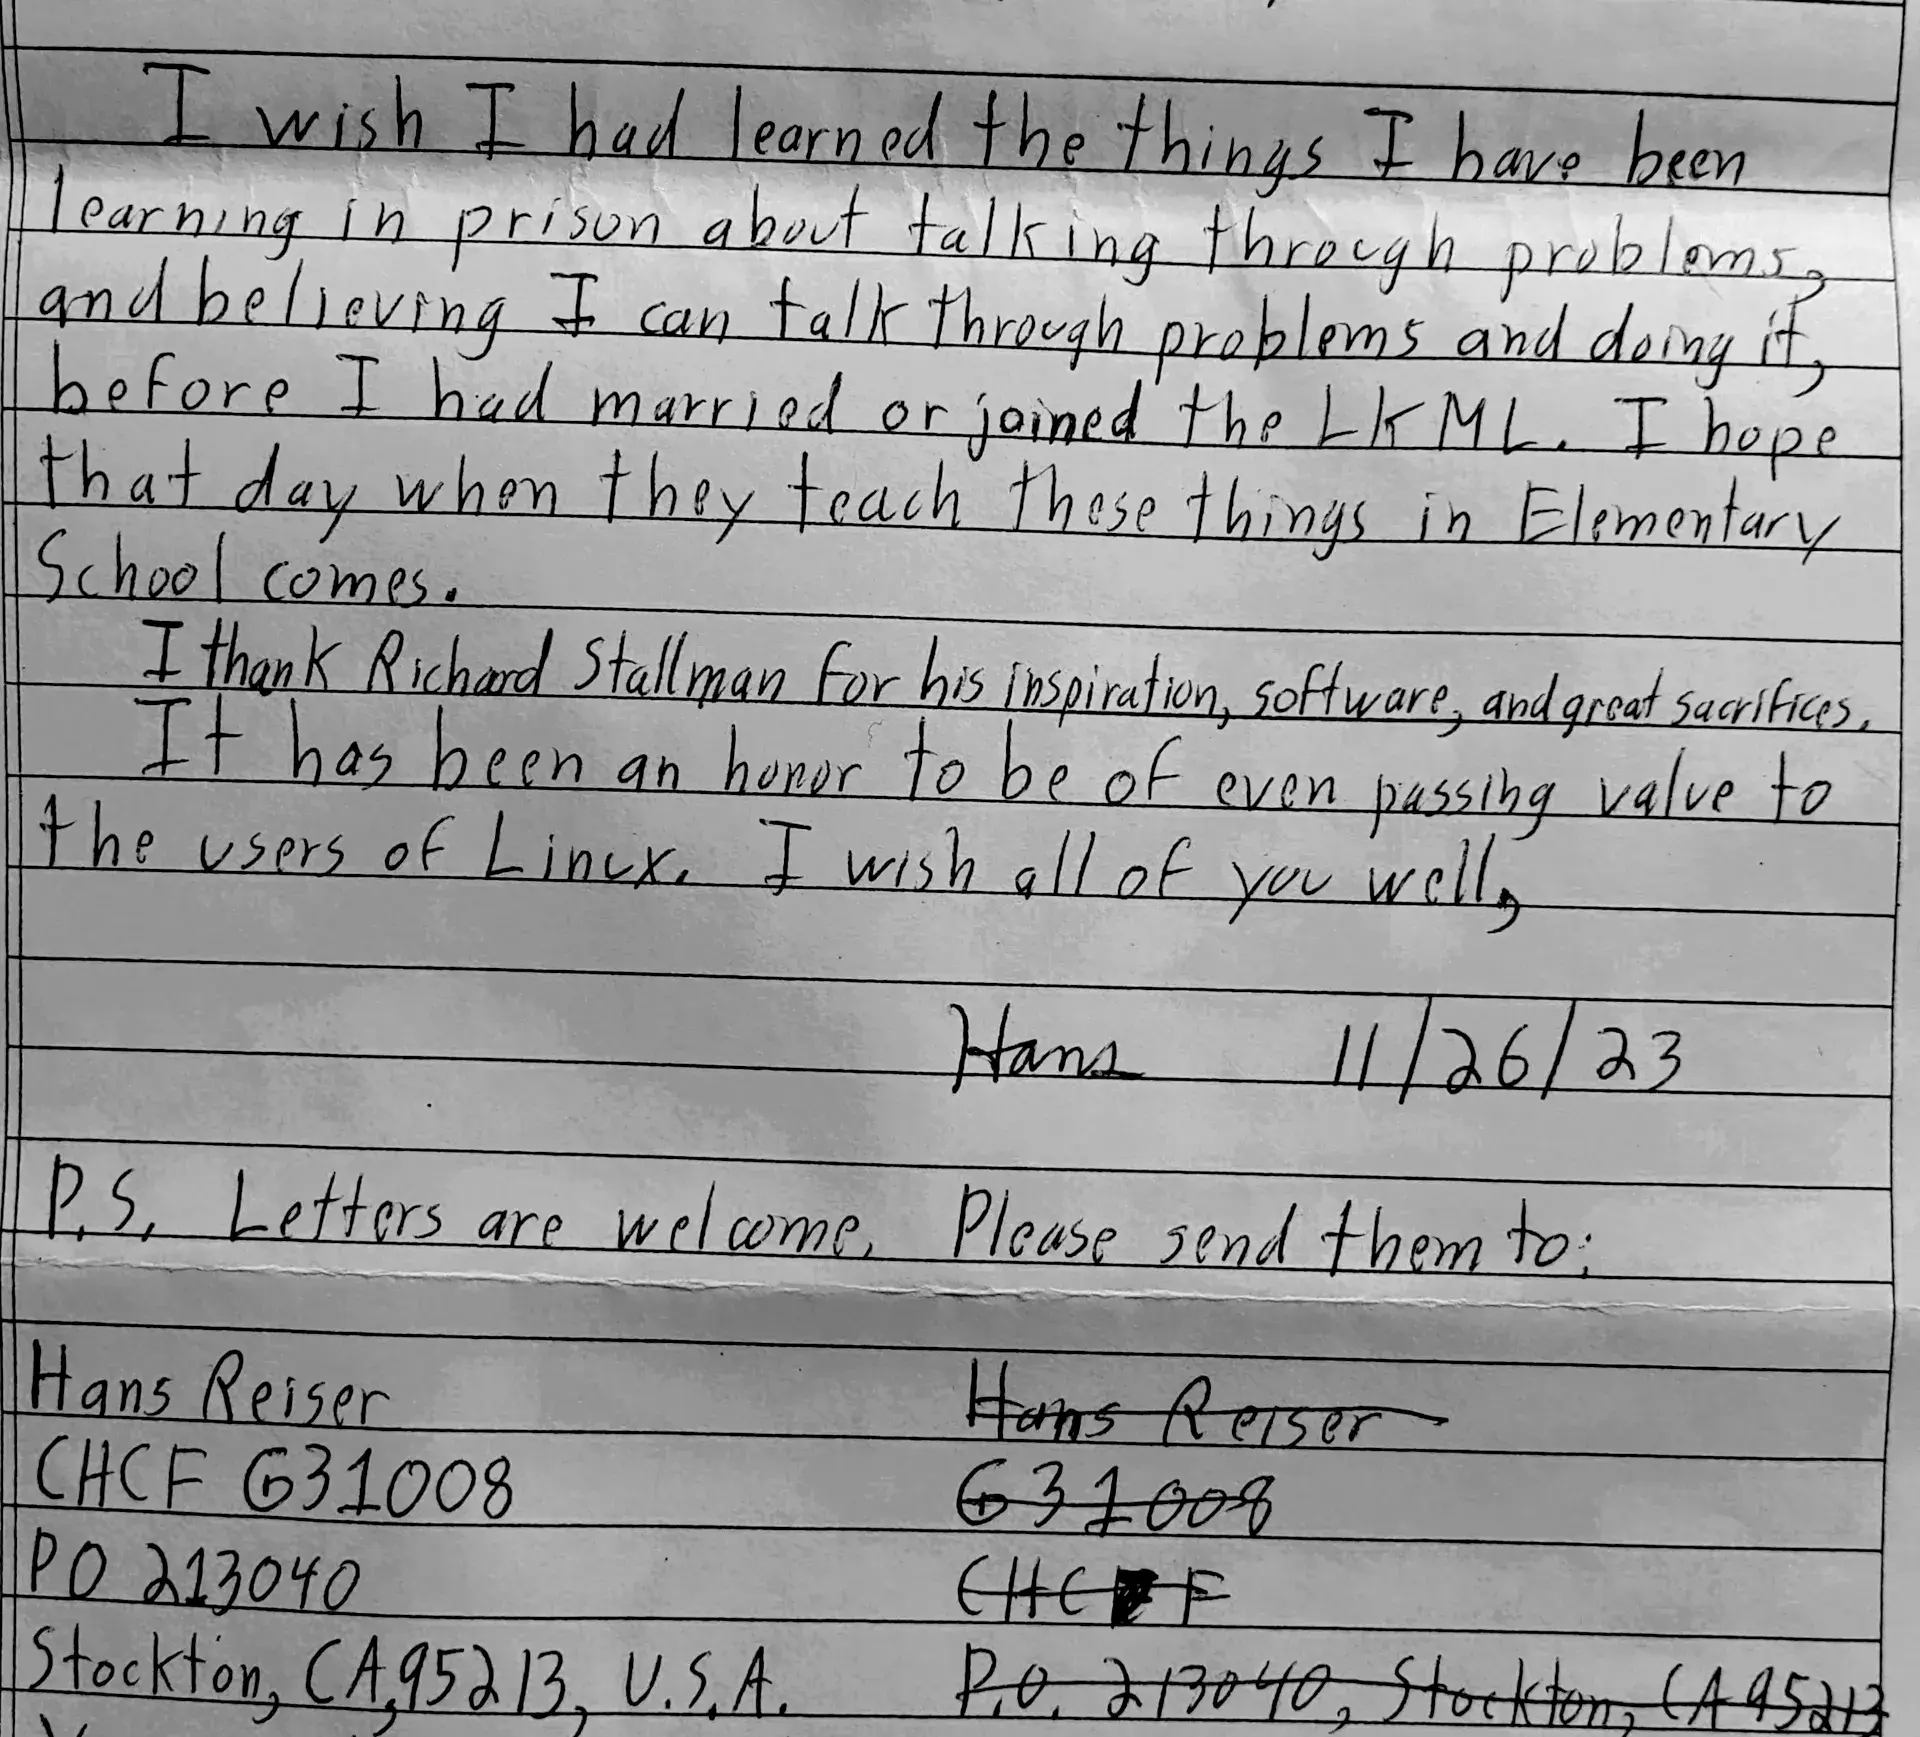 I wish I had learned the things I have been
learning in prison about talking through problems,
and believing I can talk through problems and doing it,
before I had married or joined the LKML. I hope
that day when they teach these things in Elementary
School comes.
I thank Richard Stallman for his inspiration, software, and great sacrifices.
It has been an honor to be of even passing value to
the users of Linux. I wish all of you well,
Hans 11/26/23
P.S. Letters are welcome. Please send them to:
Hans Reiser
CHCF G31008
PO 213040
Stockton, CA, 95213, U.S.A.
Hans Reiser
G31008
CHCF
P.O. 213040, Stockton, CA 95213